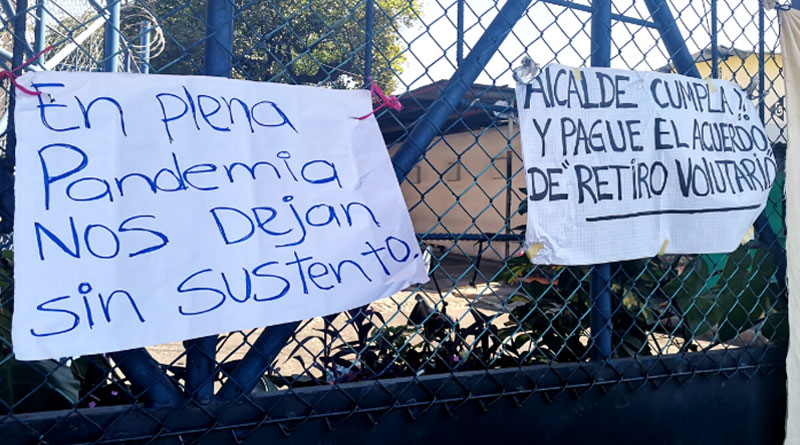 En plena
Pandemia
NOS DEJAN
sin SUSTENTO.
ALCALDE CUMPLA!!
Y PAGUE EL ACUERDO,
DE "RETIRO VOLUTARIO"